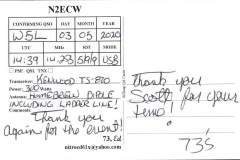 N2ECW
CONFIRMING QSO DAY MONTH YEAR
W5L 03 05 2020
UTC MHz RST MODE
14:39 14.28 59/9 USB
PSE QSL TNX
Transceiver: KENWOOD TS-870
Power: 300 Watts
Antenna: HOMEBREW DIPOLE
INCLUDING LADDER LINE!
THANK YOU
AGAIN FOR THE EVENT!
73, Ed
nitroed61x@yahoo.com
Thank you
Scott for your
time!
73's